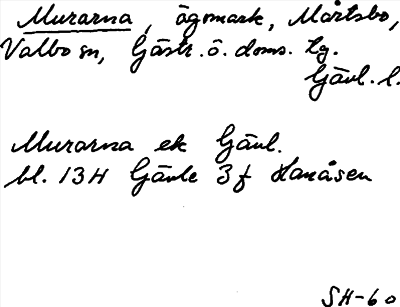 Murarna, ägomark, Mårtsbo,
Valbo sn, Gästr. ö. doms. tg.
Gävl. l.
Murarna ek Gävl.
bl. 13H Gävle 3f Hanåsen
SH-60